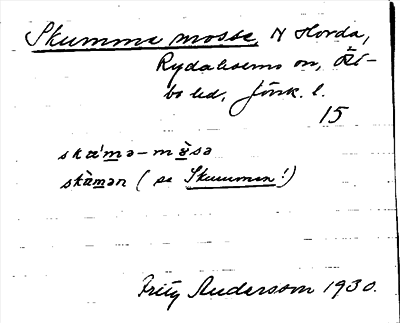 Skumma mosse, N Horda,
Rydaholms sn, Öst-
bo hd, Jönk. l.
15
skὰmə-mòsə
skὰmən (se Skumman!)
Fritz Andersson 1930.